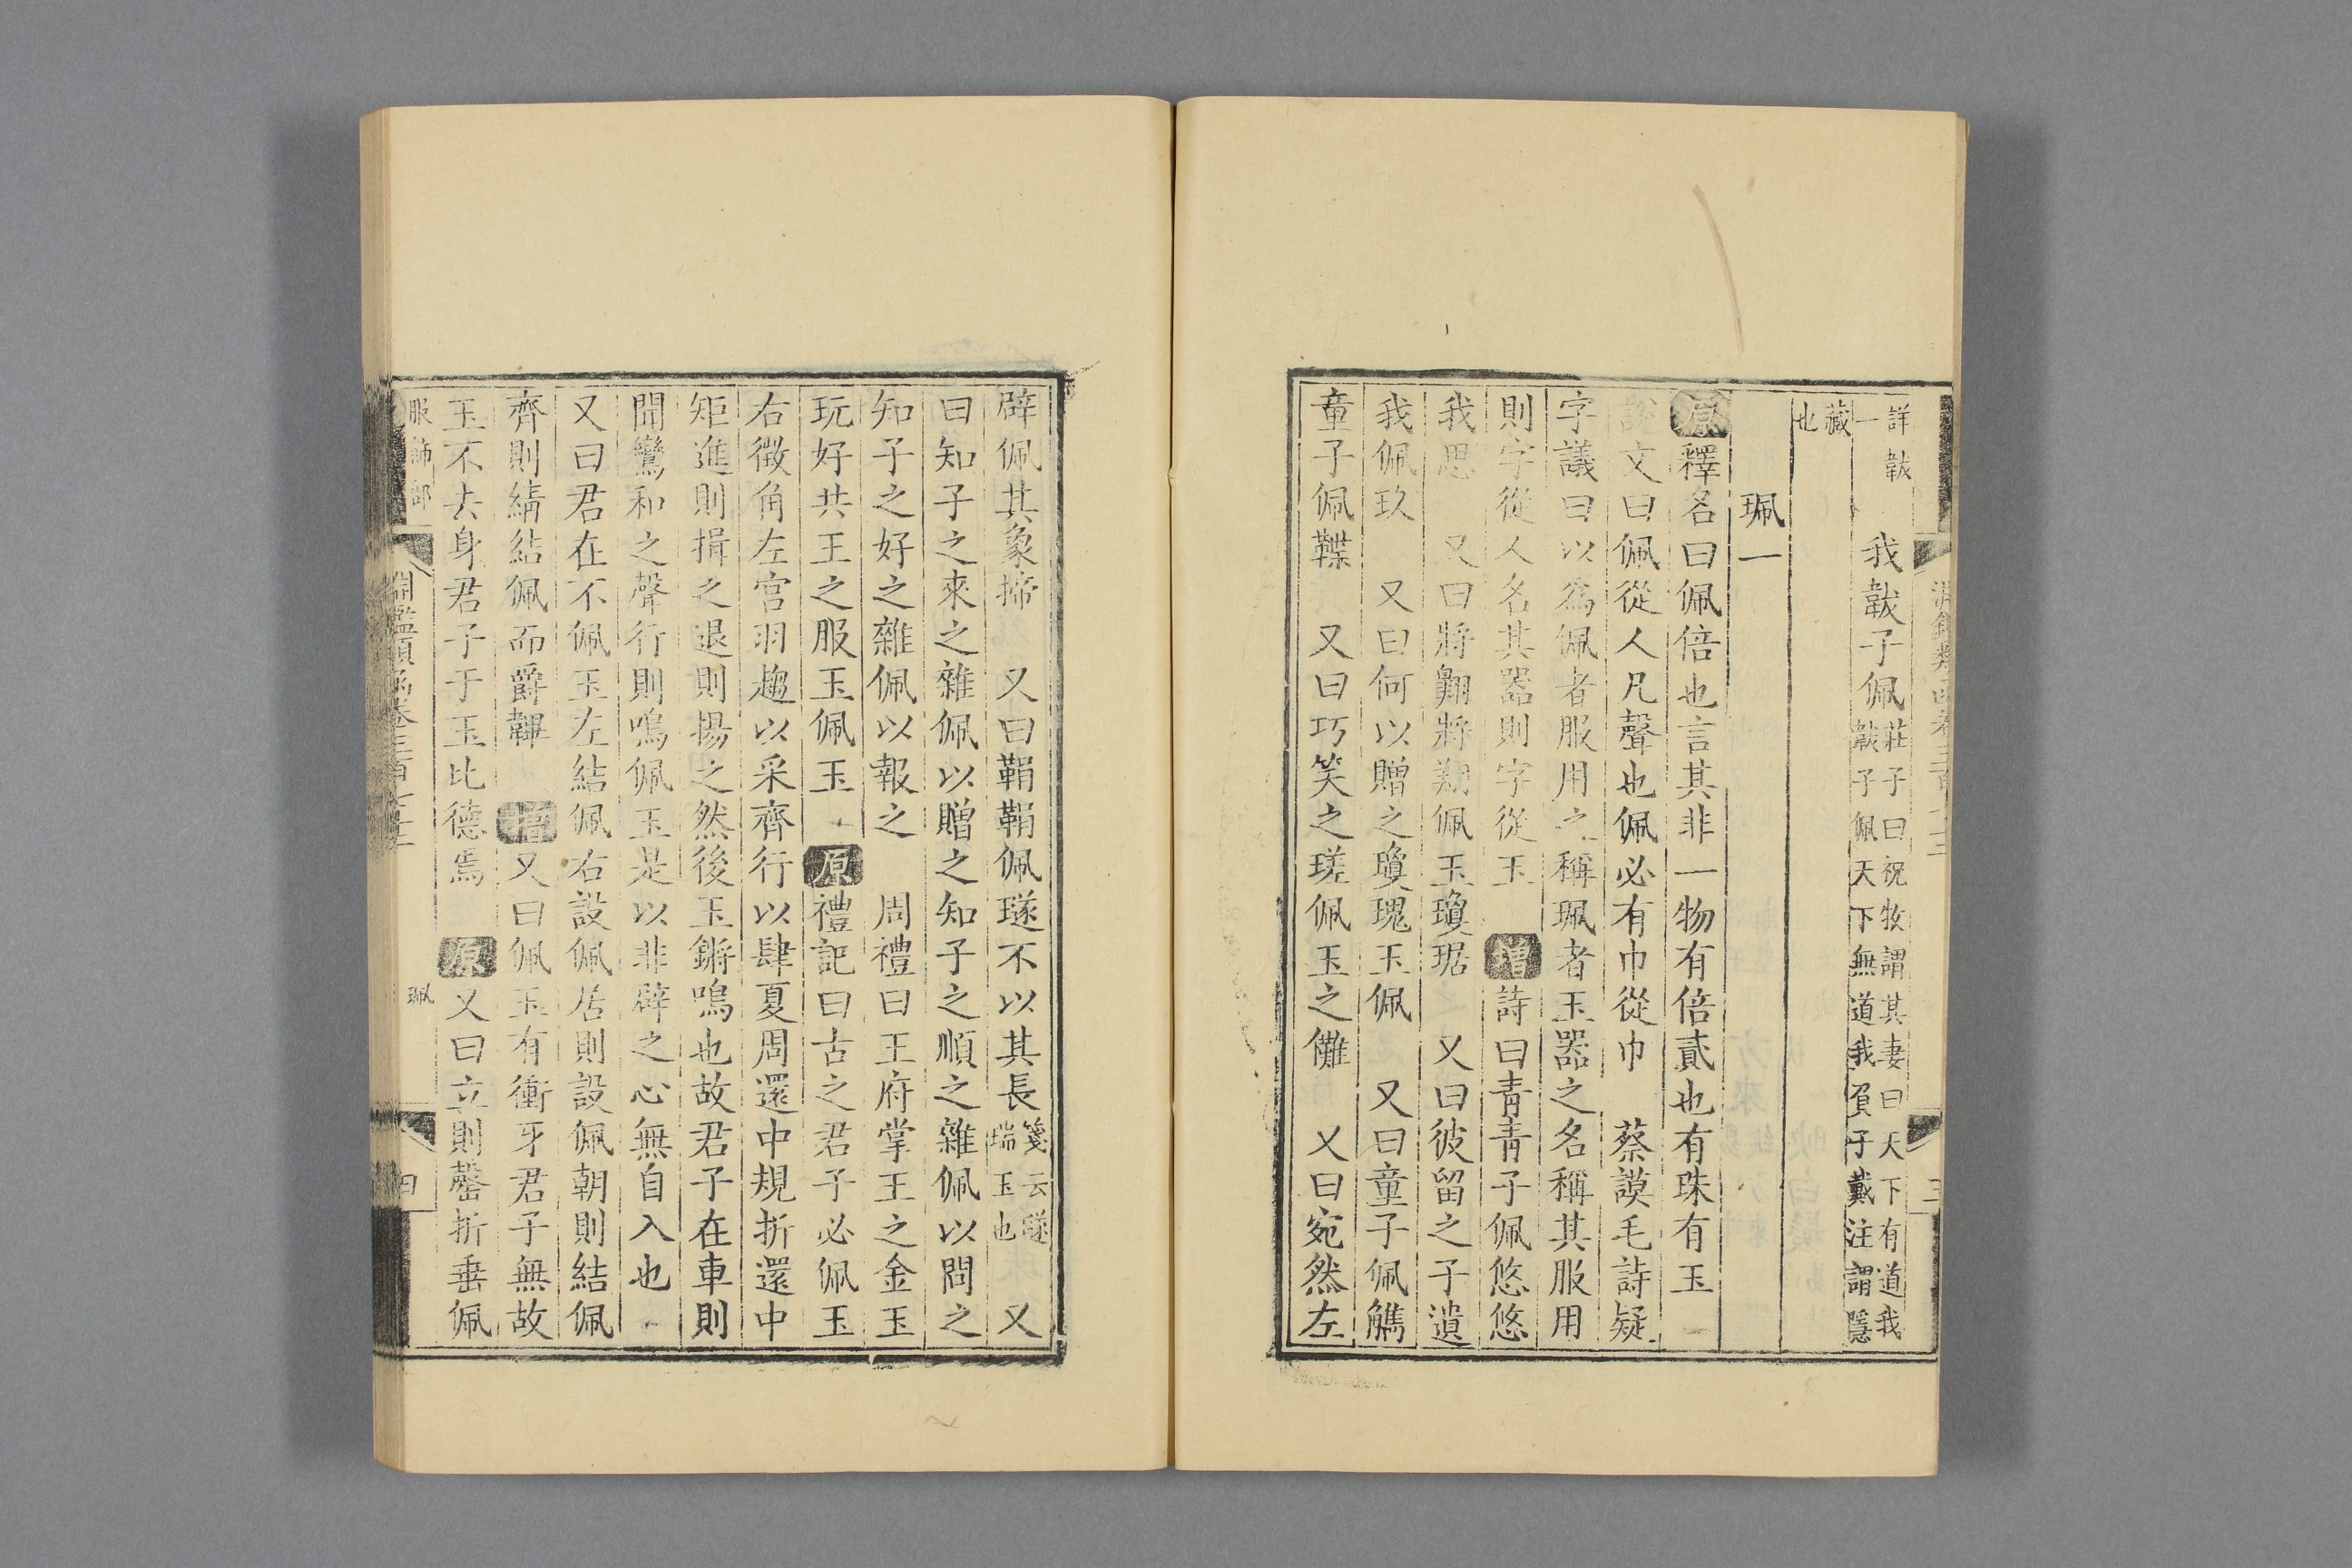 詳韍
一　我韍子佩莊子曰祝牧謂其妻曰天下有道我
韍子佩天下無道我負子戴注謂隱
藏
也
珮一
原釋名曰佩倍也言其非一物有倍貳也有珠有玉
說文曰佩從人凡聲也佩必有巾從巾　蔡謨毛詩疑
字議曰以爲佩者服用之稱珮者玉器之名稱其服用
則字從人名其器則字從玉　增詩曰青青子佩悠悠
我思　又曰將翺將翔佩玉瓊琚　又曰彼留之子遺
我佩玖　又曰何以贈之瓊瑰玉佩　又曰童子佩觿
童子佩鞢　又曰巧笑之瑳佩玉之儺　又曰宛然左
辟佩其象揥　又曰鞙鞙佩璲不以其長箋云璲
瑞玉也　又
曰知子之來之雜佩以贈之知子之順之雜佩以問之
知子之好之雜佩以報之　周禮曰王府掌王之金玉
玩好共王之服玉佩玉　原禮記曰古之君子必佩玉
右徵角左宮羽趨以采齊行以肆夏周還中規折還中
矩進則揖之退則揚之然後玉鏘鳴也故君子在車則
聞鸞和之聲行則鳴佩玉是以非辟之心無自入也
又曰君在不佩玉左結佩右設佩居則設佩朝則結佩
齊則綪結佩而爵韠　增又曰佩玉有衝牙君子無故
玉不去身君子于玉比德焉　原又曰立則罄折垂佩
服飾部　珮